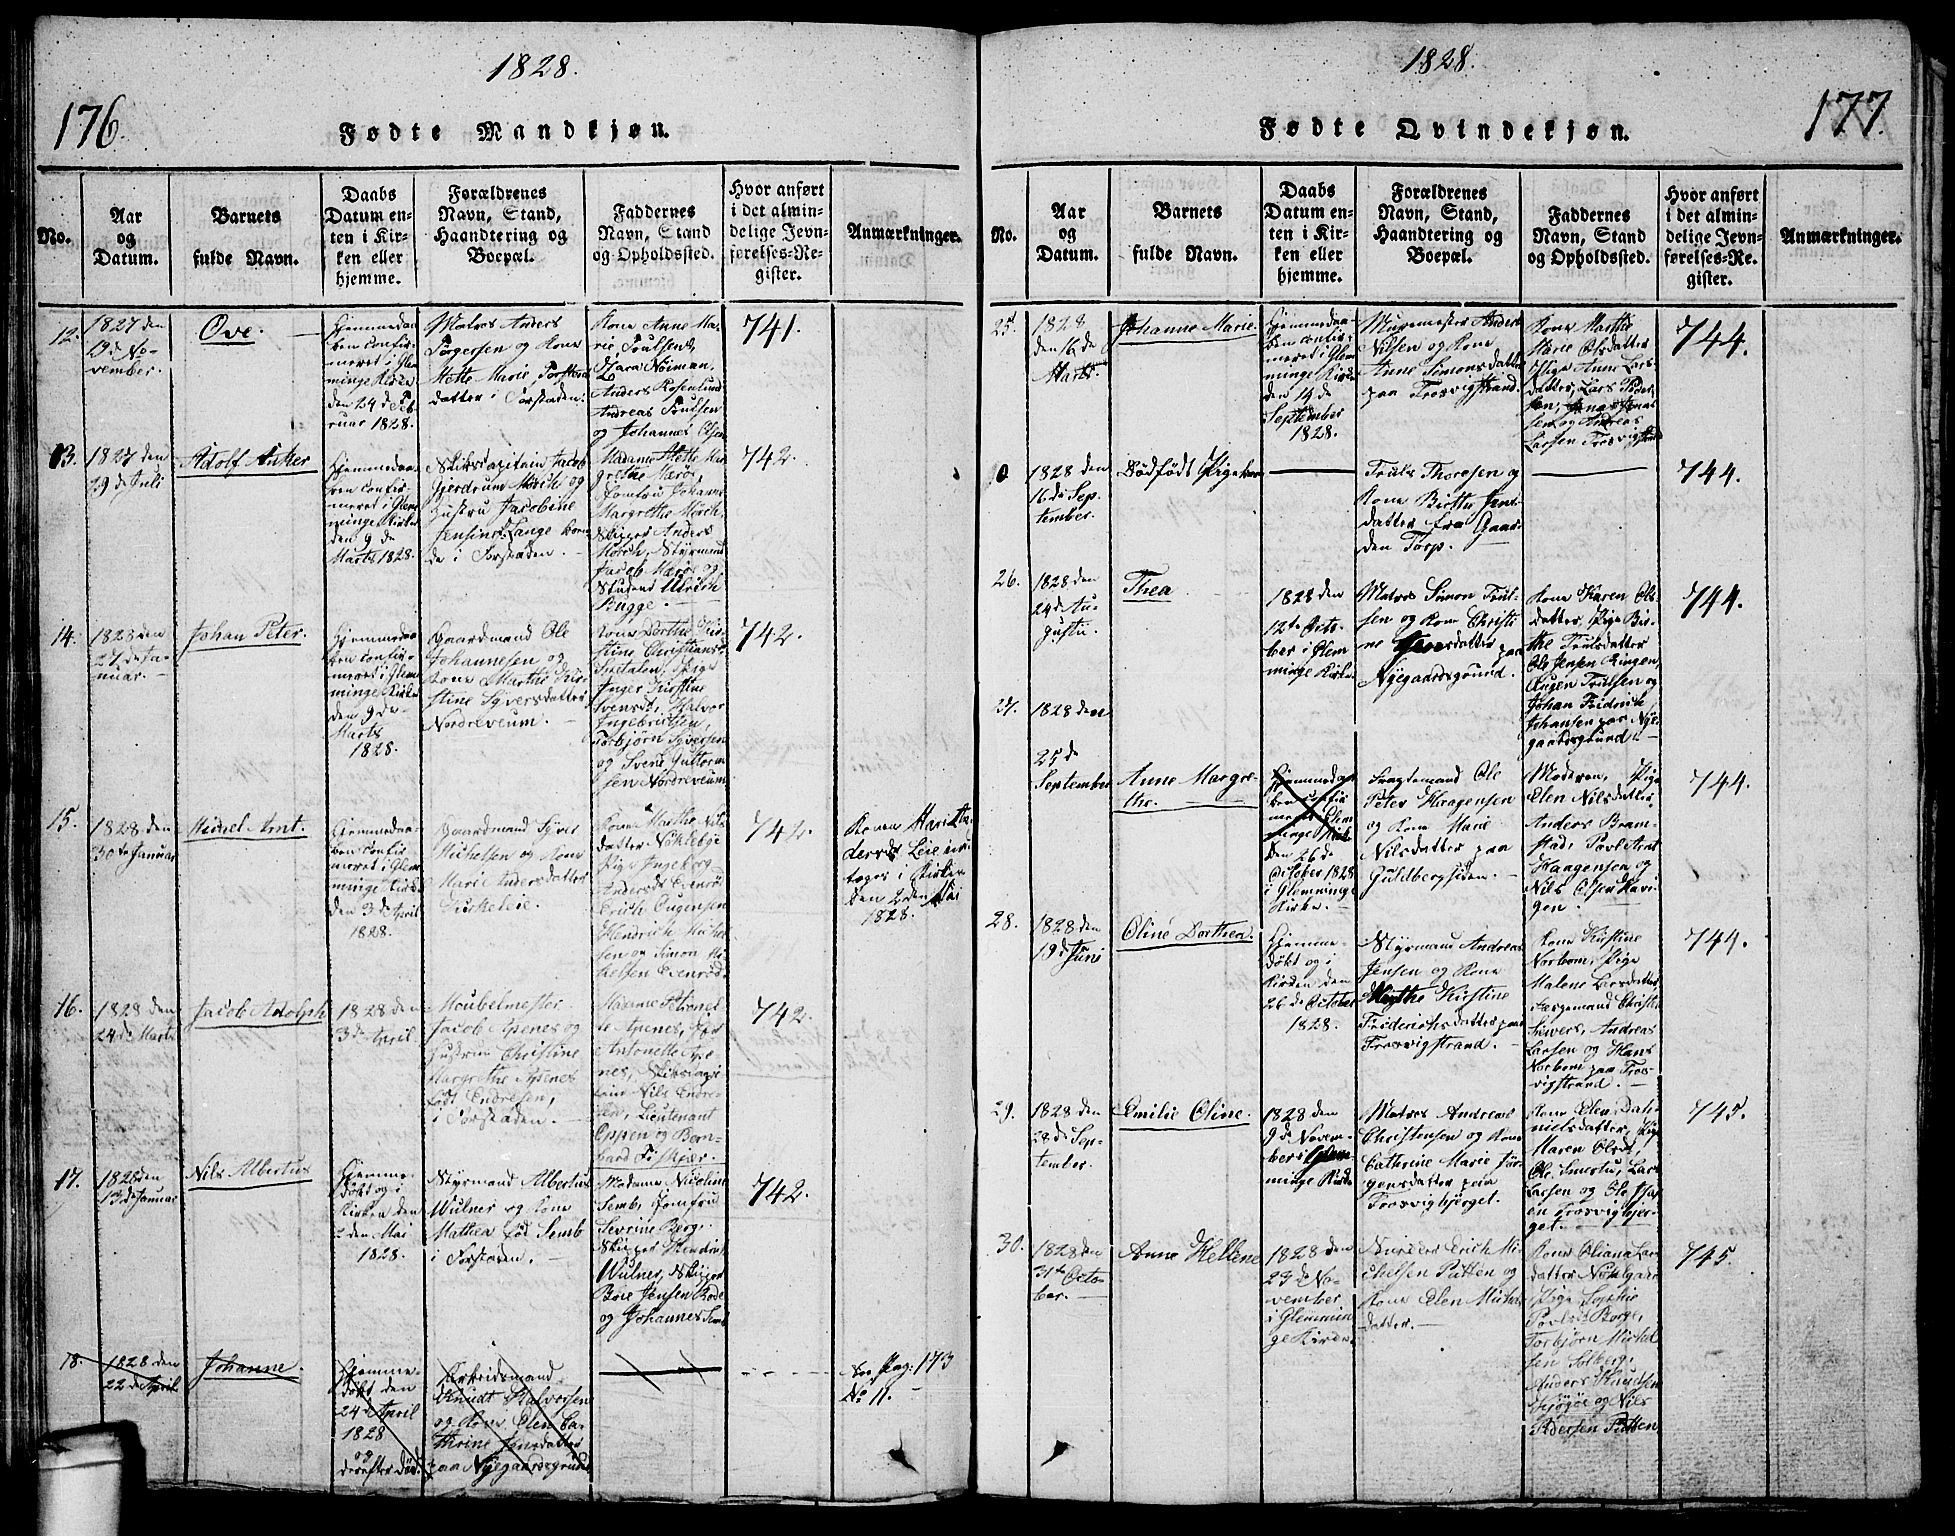 1828.
176.
Fødte Mandkjøn.
No.
Aar
og
Datum.
Barnets
fulde Navn.
Daabs
Datum en-
ten i Kir-
ken eller
hjemme.
Forældrenes
Navn, Stand,
Haandtering og
Boepæl.
Faddernes
Navn, Stand
og Opholdssted.
Hvor anført
i det almin-
delige Jevn-
førelses-Re-
gister.
Anmærkninger.
12.
1827 den
19de No-
vember.
Ove.
Hjemmedaa-
ben confir-
meret i Glem-
minge Kirke
den 24de Feb-
ruar 1828.
Matros Anders
Torgersen og Kone
Mette Marie, Torsteens
datter i Forstaden.
Kone Anne Ma-
rie, Poulsens,
Zara Neiman,
Anders Rosenlund
Andreas Poulsen
og Johannes Olsen
741.
13.
1827 den
19de Juli
Adolf Anker
Hjemmedaa-
ben confir-
meret i Glem-
minge Kirke
den 9de
Marts 1828.
Skibscapitain Jacob
Gjerdrum Mørch og
Hustru Jacobine
Jensine Lange boen-
de i Forstaden.
Madame Mette Mar-
grethe Mærø,
Jomfru Johanne
Margrethe Mørch,
Skipper Anders
Mørch, Styrmand
Jacob Mærø og
Student Ulrich
Bugge.
742.
14.
1828 den
27de Ja-
nuar.
Johan Peter.
Hjemmedaa-
ben confir-
meret i Glem-
minge Kirke
den 9de
Marts
1828.
Gaardmand Ole
Johannesen og
Kone Marthe Kir-
stine Syversdatter
Nordreveum.
Kone Dorthe Kir-
stine Christiansd.
Smdalen, Pige
Inger Kirstine
Svensdt, Halvor
Ingebrigtsen,
Torbjørn Syversen
og Svend Guttorm
sen Nordreveum
742.
15.
1828 den
30de Januar
Michel Arnt.
Hjemmedaa-
ben confir-
meret i Glem-
minge Kirke
den 3de April
1828.
Gaardmand Syver
Michelsen og Kone
Marie Andersdatter
Kirkeleie.
Kone Marthe Nils
datter Nøklebye
Pige Ingeborg
Andersdt Evenrød
Erich Eugensen
Hendrich Michel
sen og Simon Mi-
chelsen Evenrød
742.
Konen Marie An-
dersdt Leie ind-
taget i Kirken
den 2den Mai
1828.
16.
1828 den
24de Marts
Jacob Adolph
1828 den
3de April
Moubelmester
Jacob Apenes og
Hustrue Christine
Margrethe Apenes
født Endresen,
i Forstaden.
Madame Petronel-
le Apenes, Jfr
Antonette Ape-
nes, Skibscapi-
tain Nils Endre-
sen, Lieutenant
Eppen og Bern-
hard Fiskjær.
742.
17.
1828 den
13de Januar
Nils Albertus
Hjemme-
døbt og i
Kirken den
2den Mai
1828.
Styrmand Albertus
Wulner og Kone
Mathea fød Semb
i Forstaden.
Madame Nicoline
Semb, Jomfrue
Severine Berg,
Skipper Hendrik
Wulner, Skipper
Bøie Jensen Rode
og Johannes Semb
742.
18.
1828 den
22de April
Johanne.
Hjemme-
døbt den
24de April
1828
og
derefter død
Arbeidsmand
Knudt Halvorsen
og Kone Elen Ca-
thrine Jensdatter
paa Nyegaardsgrund
See Pag: 173
No 11.
1828.
177.
Fødte Qvindekjøn.
No.
Aar
og
Datum.
Barnets
fulde Navn.
Daabs
Datum en-
ten i Kir-
ken eller
hjemme.
Forældrenes
Navn, Stand,
Haandtering og
Boepæl.
Faddernes
Navn, Stand
og Opholdssted.
Hvor anført
i det almin-
delige Jevn-
førelses-Re-
gister.
Anmærkninger.
25.
1828
den 16de
Marts.
Johanne Marie.
Hjemmedaa-
ben confir-
meret i Glem-
minge Kirke
den 14de
September
1828.
Muremester Anders
Nilsen og Kone
Anne Simonsdatter
paa Trosvigstrand.
Kone Marthe
Marie Olsdatter
Pige Anne Lars-
datter, Lars Peder-
sen, Jonas Jonas
sen og Andreas
Larsen Trosvigstrand
744.
0
1828 den
16de Sep-
tember.
Dødfødt Pigebarn
Truls Thoresen og
Kone Birthe Jens
datter fra Gaar-
den Torp.
744.
26.
1828 den
24de Au-
gusti.
Thea
1828 den
12te Octo-
ber i Glem-
minge Kirke
Matros Simon Trul-
sen og Kone Christi
ne Jensdatter paa
Nyegaardsgrund.
Kone Karen Ols-
datter, Pige Bir-
the Trulsdatter
Ole Jensen Ringen,
Eugen Trulsen og
Johan Fridrich
Johansen paa Nye-
gaardsgrund.
744.
27.
1828 den
25de
September
Anne Margre-
the.
Hjemmedaa-
ben confir
meret i Glem
minge Kirke
den 26de
October 1828
i Glemminge
Kirke.
Fragtemand Ole
Peter Haagensen
og Kone Marie
Nilsdatter paa
Guldbergsiden.
Moderen, Pige
Elen Nilsdatter
Anders Bram-
stad, Povl Arnt
Haagensen og
Nils Olsen Kavri-
gen.
744.
28.
1828 den
19de Juni
Oline Dorthea.
Hjemme-
døbt og i
Kirken den
26de October
1828.
Styrmand Andreas
Jensen og Kone
Mrythe Kirstine
Friderichsdatter paa
Trosvigstrand.
Kone Kirstine
Norbom, Pige
Malene Larsdatter,
Færgemand Christen
Siwers, Andreas
Larsen og Hans
Norbom paa Tros-
vigstrand.
744.
29.
1828 den
28de Sep-
tember.
Emilie Oline.
1828 den
9de Novem-
ber i Glem-
minge Kirke
Matros Andreas
Christensen og Kone
Cathrine Marie Jør-
gensdatter paa
Trosvigbjerget.
Kone Elen Dan-
nielsdatter, Pige
Maren Olsdt,
Ole Smertu, Lars
Larsen og Ole Isa
en Trosvigbjer-
get.
745.
30.
1828 den
31te Octo-
ber.
Anne Hellene
1828 den
23de No-
vember
i Glemmin-
ge Kirke.
Snedker Erich Mi-
chelsen Putten og
Kone Elen Michels
datter.
Kone Eliana Lars
datter Nøklegaard
Pige Sophie
Povlsdt Borge,
Torbjørn Michel
sen Solberg,
Anders Knudsen
Skjøgøe og Nils
Pedersen Putten
745.